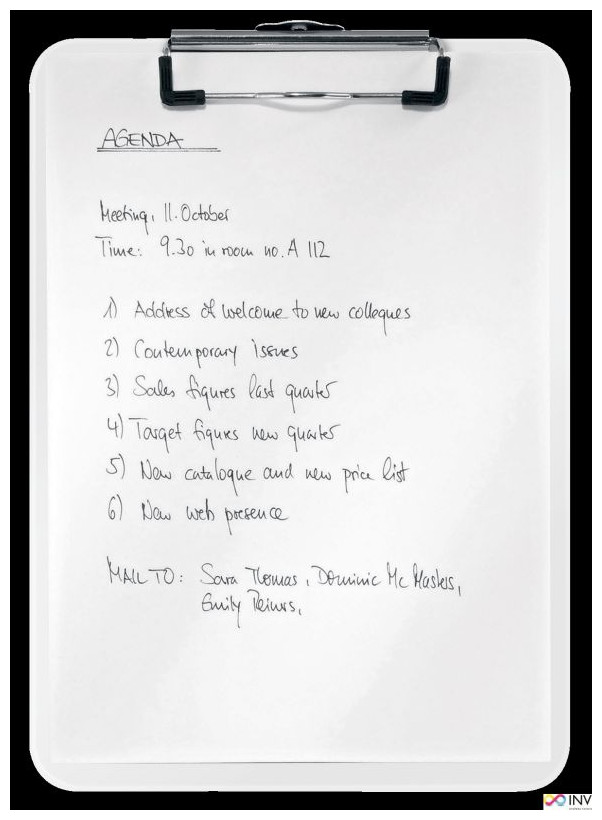 AGENDA
Meeting, 11. October
Time: 9.30 in room no. A 112
1) Address of welcome to new colleques
2) Contemporary issues
3) Sales figures last quarter
4) Target figures new quarter
5) New catalogue and new price list
6) New web presence
MAIL TO: Sara Thomas, Dominic McMasters,
Emily
INV